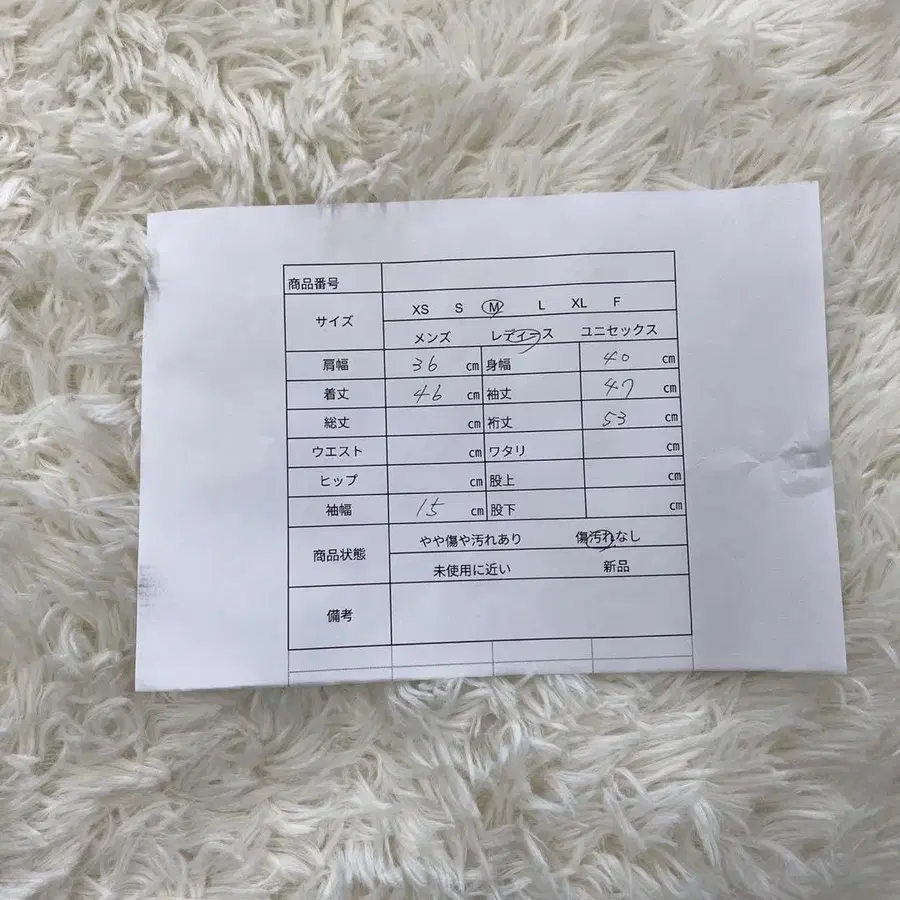 商品番号
サイズ XS S M L XL F
メンズ レディース ユニセックス
肩幅 36 cm 身幅 40 cm
着丈 46 cm 袖丈 47 cm
総丈 cm 裄丈 53 cm
ウエスト cm ワタリ cm
ヒップ cm 股上 cm
袖幅 15 cm 股下 cm
商品状態 やや傷や汚れあり 傷汚れなし
未使用に近い 新品
備考